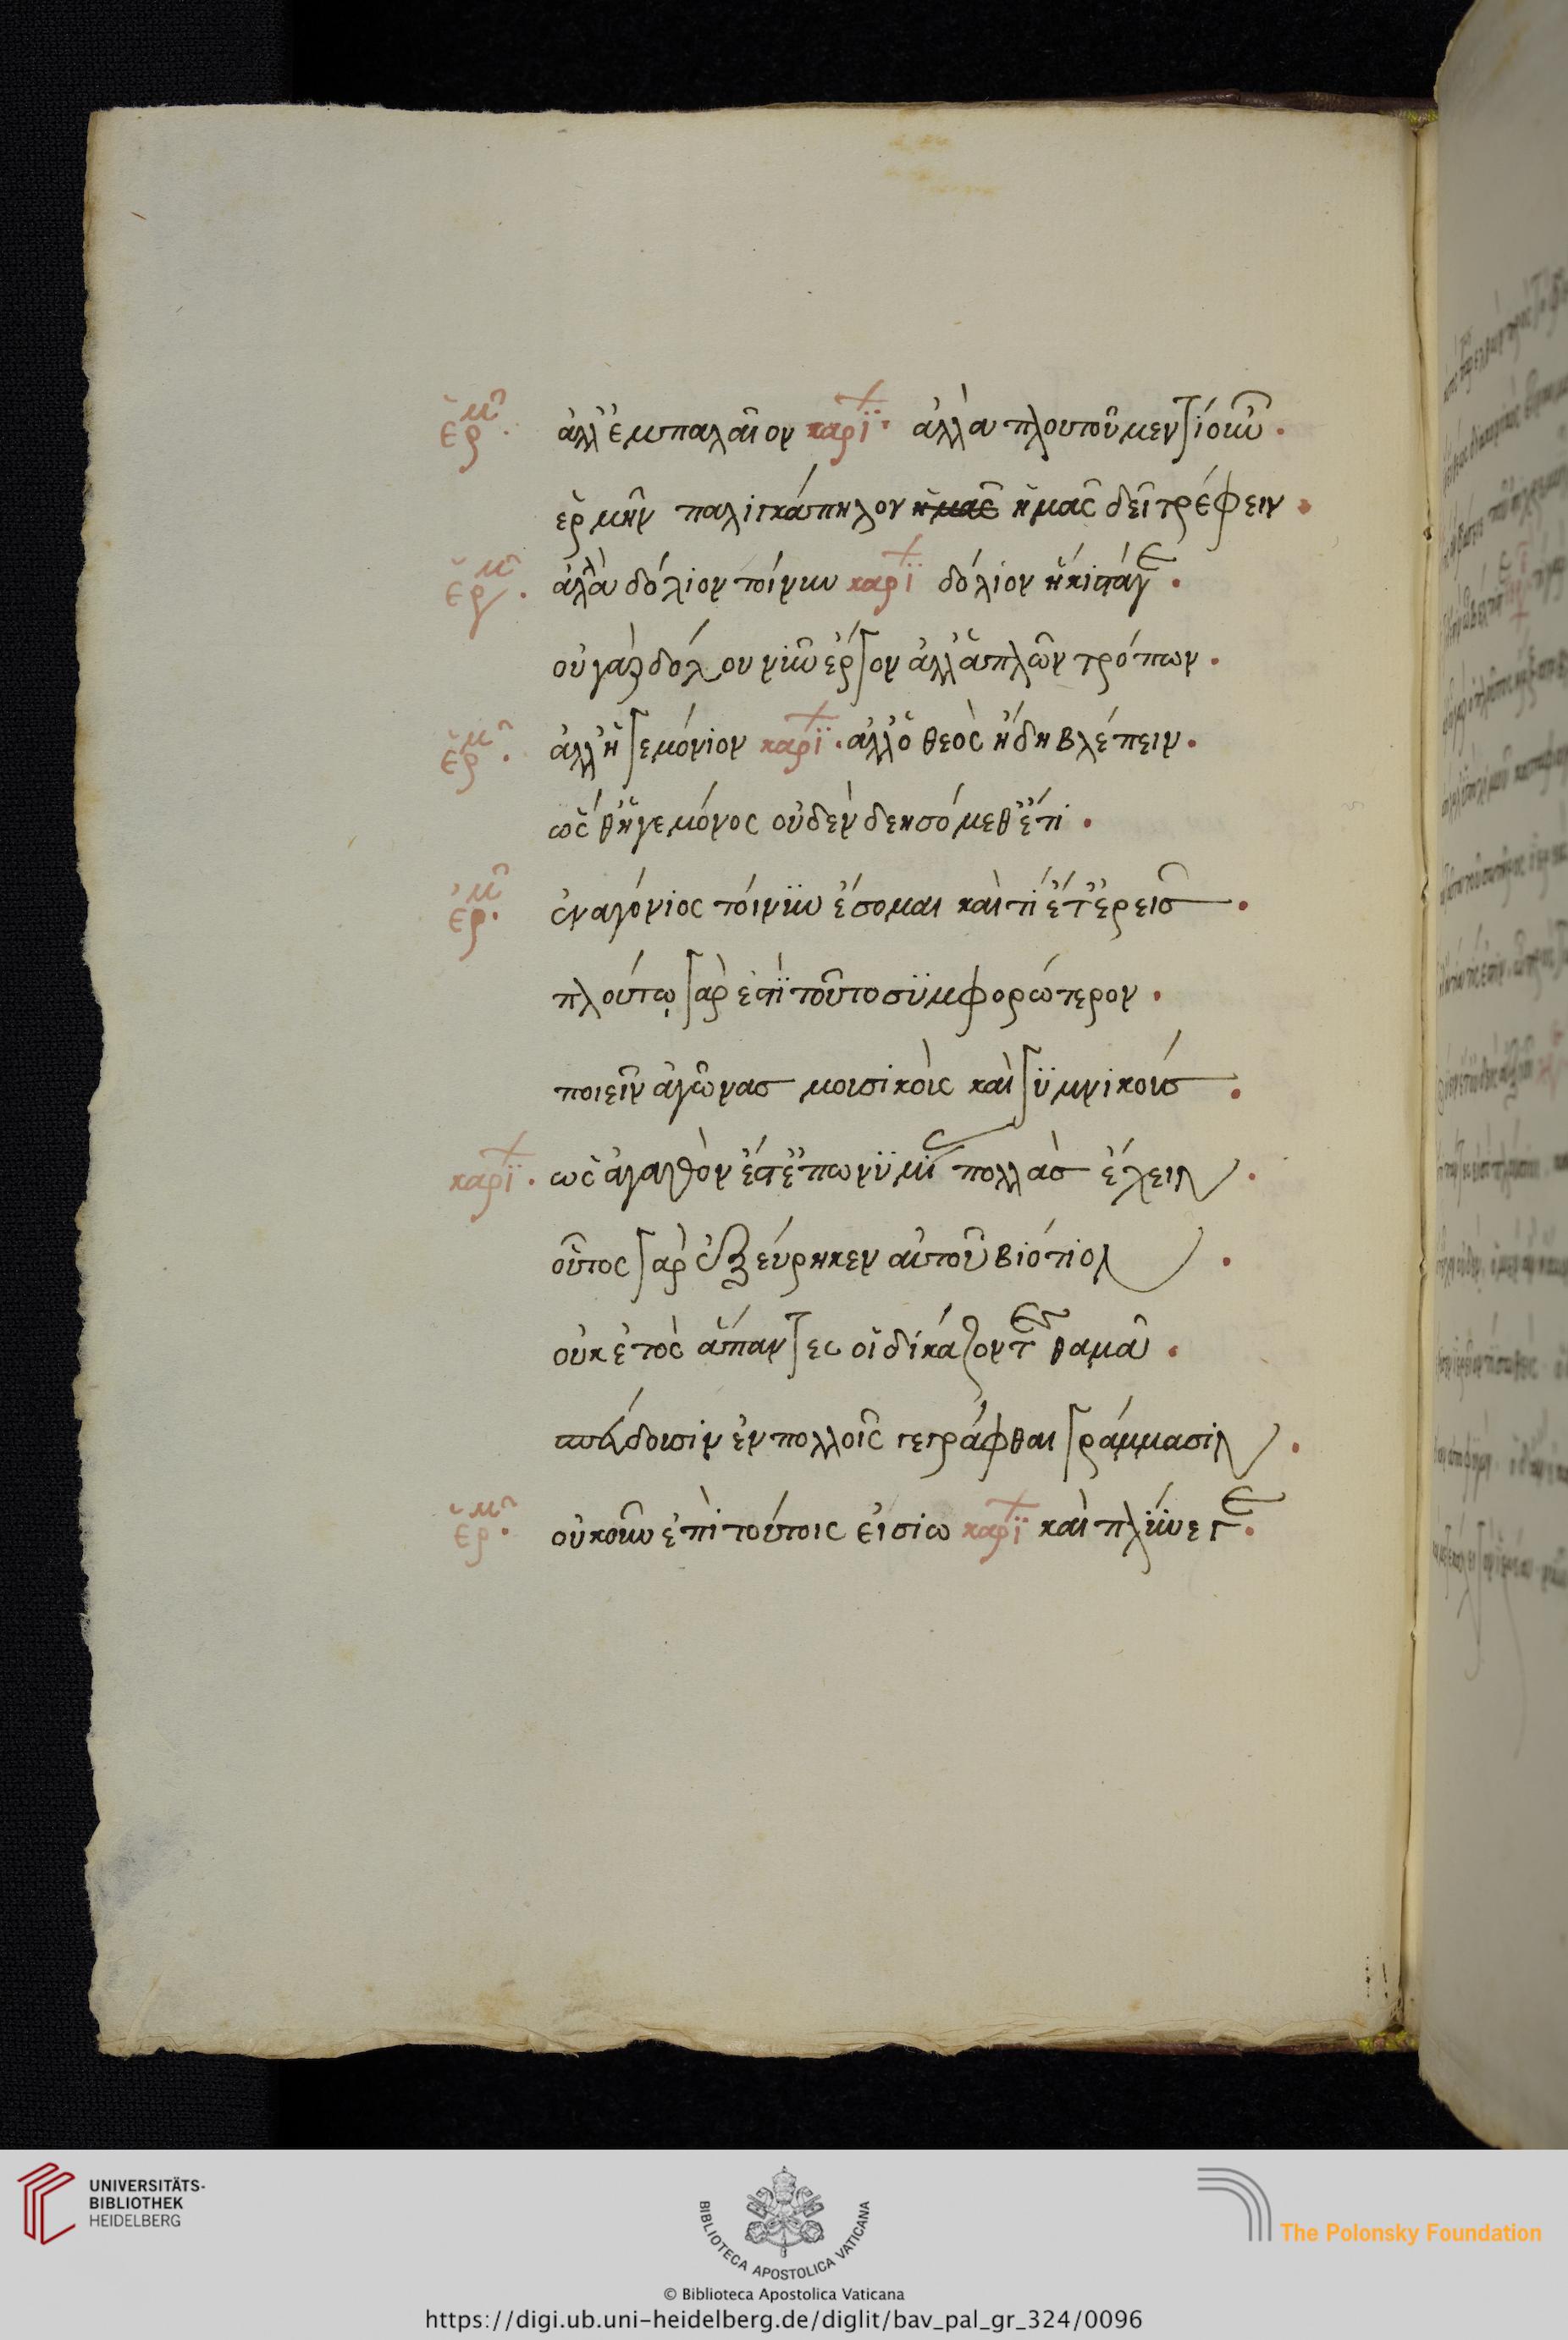 ἑρμ. ἀλλ' ἐμπαλαῖον καρι. ἀλλὰ πλουτοῦμεν τί οὖν.
ἑρμῆν παλιγκάπηλον ἡμᾶς ἡμᾶς δεῖ τρέφειν.
ἑρμ. ἀλλὰ δόλιον τοίνυν καρϊ δόλιον ἥκιστάγε.
οὐ γὰρ δόλου νῦν ἔργον ἀλλ' ἁπλῶν τρόπων.
ἑρμ. ἀλλ' ἡγεμόνιον καρϊ. ἀλλ' ὁ θεὸς ἤδη βλέπειν.
ὥσθ' ἡγεμόνος οὐδὲν δεησόμεθ' ἔτι.
ἑρμ. ἐναγόνιος τοίνυν ἔσομαι καὶ τί ἔτ' ἐρεῖς.
πλούτῳ γὰρ ἐστὶ τοῦτο συμφορώτερον.
ποιεῖν ἀγῶνας μουσικοὺς καὶ γυμνικούς.
καρϊ. ὡς ἀγαθὸν ἔστ' ἐπωνυμίας πολλὰς ἔχειν.
οὗτος γὰρ ἐξεύρηκεν αὐτοῦ βιότιον.
οὐκ ἐτὸς ἅπαντες οἱ δικάζοντες θαμὰ.
σπεύδουσιν ἐν πολλοῖς γεγράφθαι γράμμασιν.
ἑρμ. οὐκοῦν ἐπὶ τούτοις εἰσίω καρϊ καὶ πλῦνέ γε.
UNIVERSITÄTS-
BIBLIOTHEK
HEIDELBERG
BIBLIOTECA APOSTOLICA VATICANA
The Polonsky Foundation
© Biblioteca Apostolica Vaticana
https://digi.ub.uni-heidelberg.de/diglit/bav_pal_gr_324/0096